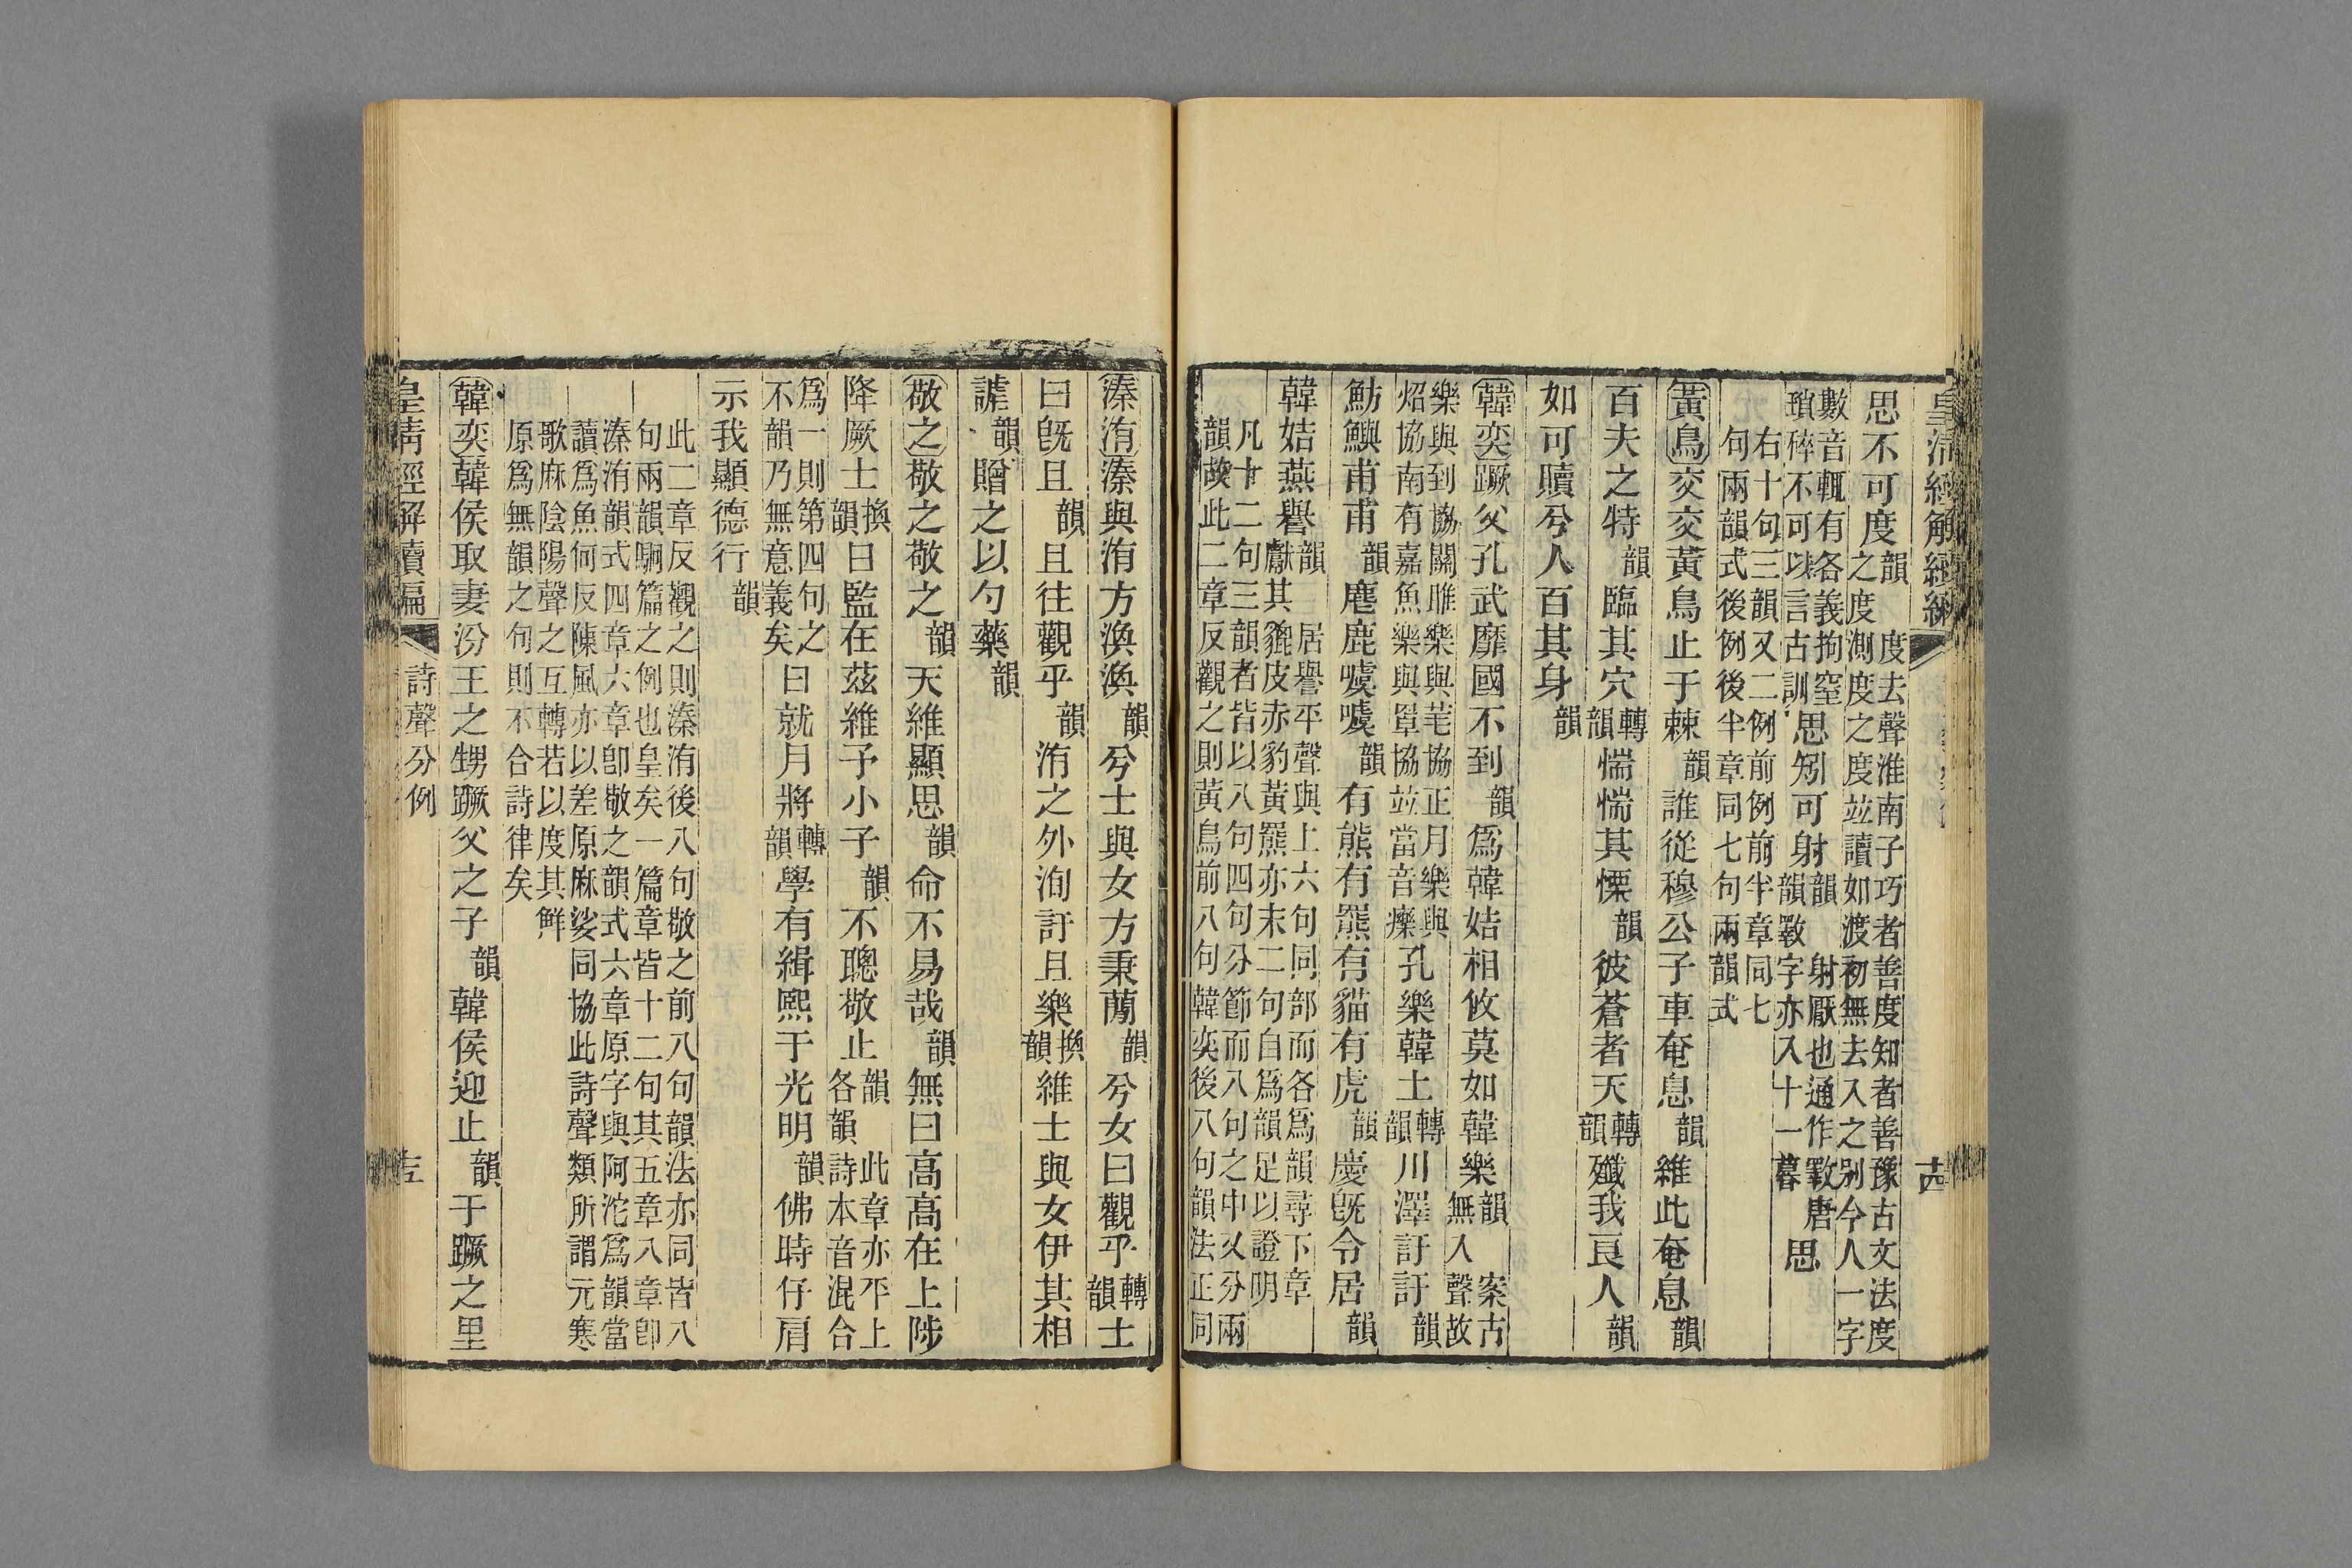 皇清經解續
思不可度韻之度
度去聲淮南子巧者善度知者善豫古文法度
測度之度竝讀如渡初無去入之别今人一字
數音輒有各義拘窒
瑣碎不可以言古訓
思矧可射韻
射厭也通作斁唐
韻斁字亦入十一暮
思
右十句三韻又二例前例前半章同七
句兩韻式後例後半章同七句兩韻式
黃鳥交交黃鳥止于棘韻誰從穆公子車奄息韻維此奄息韻
百夫之特韻臨其穴轉韻惴惴其慄韻彼蒼者天轉韻殲我良人韻
如可贖兮人百其身韻
韓奕蹶父孔武靡國不到韻爲韓姞相攸莫如韓樂韻
案古無入聲故
樂與到協關雎樂與芼協正月樂與
炤協南有嘉魚樂與罩協竝當音㿋
孔樂韓土轉韻川澤訏訏韻
魴鱮甫甫韻麀鹿噳噳韻有熊有羆有貓有虎韻慶旣令居韻
韓姞燕譽韻
居譽平聲與上六句同部而各爲韻尋下章
獻其貔皮赤豹黃羆亦末二句自爲韻足以證明
凡十二句三韻者皆以八句四句分節而八句之中又分兩
韻故此二章反觀之則黃鳥前八句韓奕後八句韻法正同
溱洧溱與洧方渙渙韻兮士與女方秉蕑韻兮女曰觀乎轉韻士
曰旣且韻且往觀乎韻洧之外洵訏且樂換韻維士與女伊其相
謔韻贈之以勺藥韻
敬之敬之敬之韻天維顯思韻命不易哉韻無曰高高在上陟
降厥士換韻日監在茲維予小子韻不聰敬止韻
此章亦平上
各韻詩本音混合
爲一則第四句之
不韻乃無意義矣
日就月將轉韻學有緝熙于光明韻佛時仔肩
示我顯德行韻
此二章反觀之則溱洧後八句敬之前八句韻法亦同皆八
句兩韻駉篇之例也皇矣一篇章皆十二句其五章八章卽
溱洧韻式四章六章卽敬之韻式六章原字與阿沱爲韻當
讀爲魚何反陳風亦以差原麻娑同協此詩聲類所謂元寒
歌麻陰陽聲之互轉若以度其鮮
原爲無韻之句則不合詩律矣
韓奕韓侯取妻汾王之甥蹶父之子韻韓侯迎止韻于蹶之里
皇淸經解續編
詩聲分例